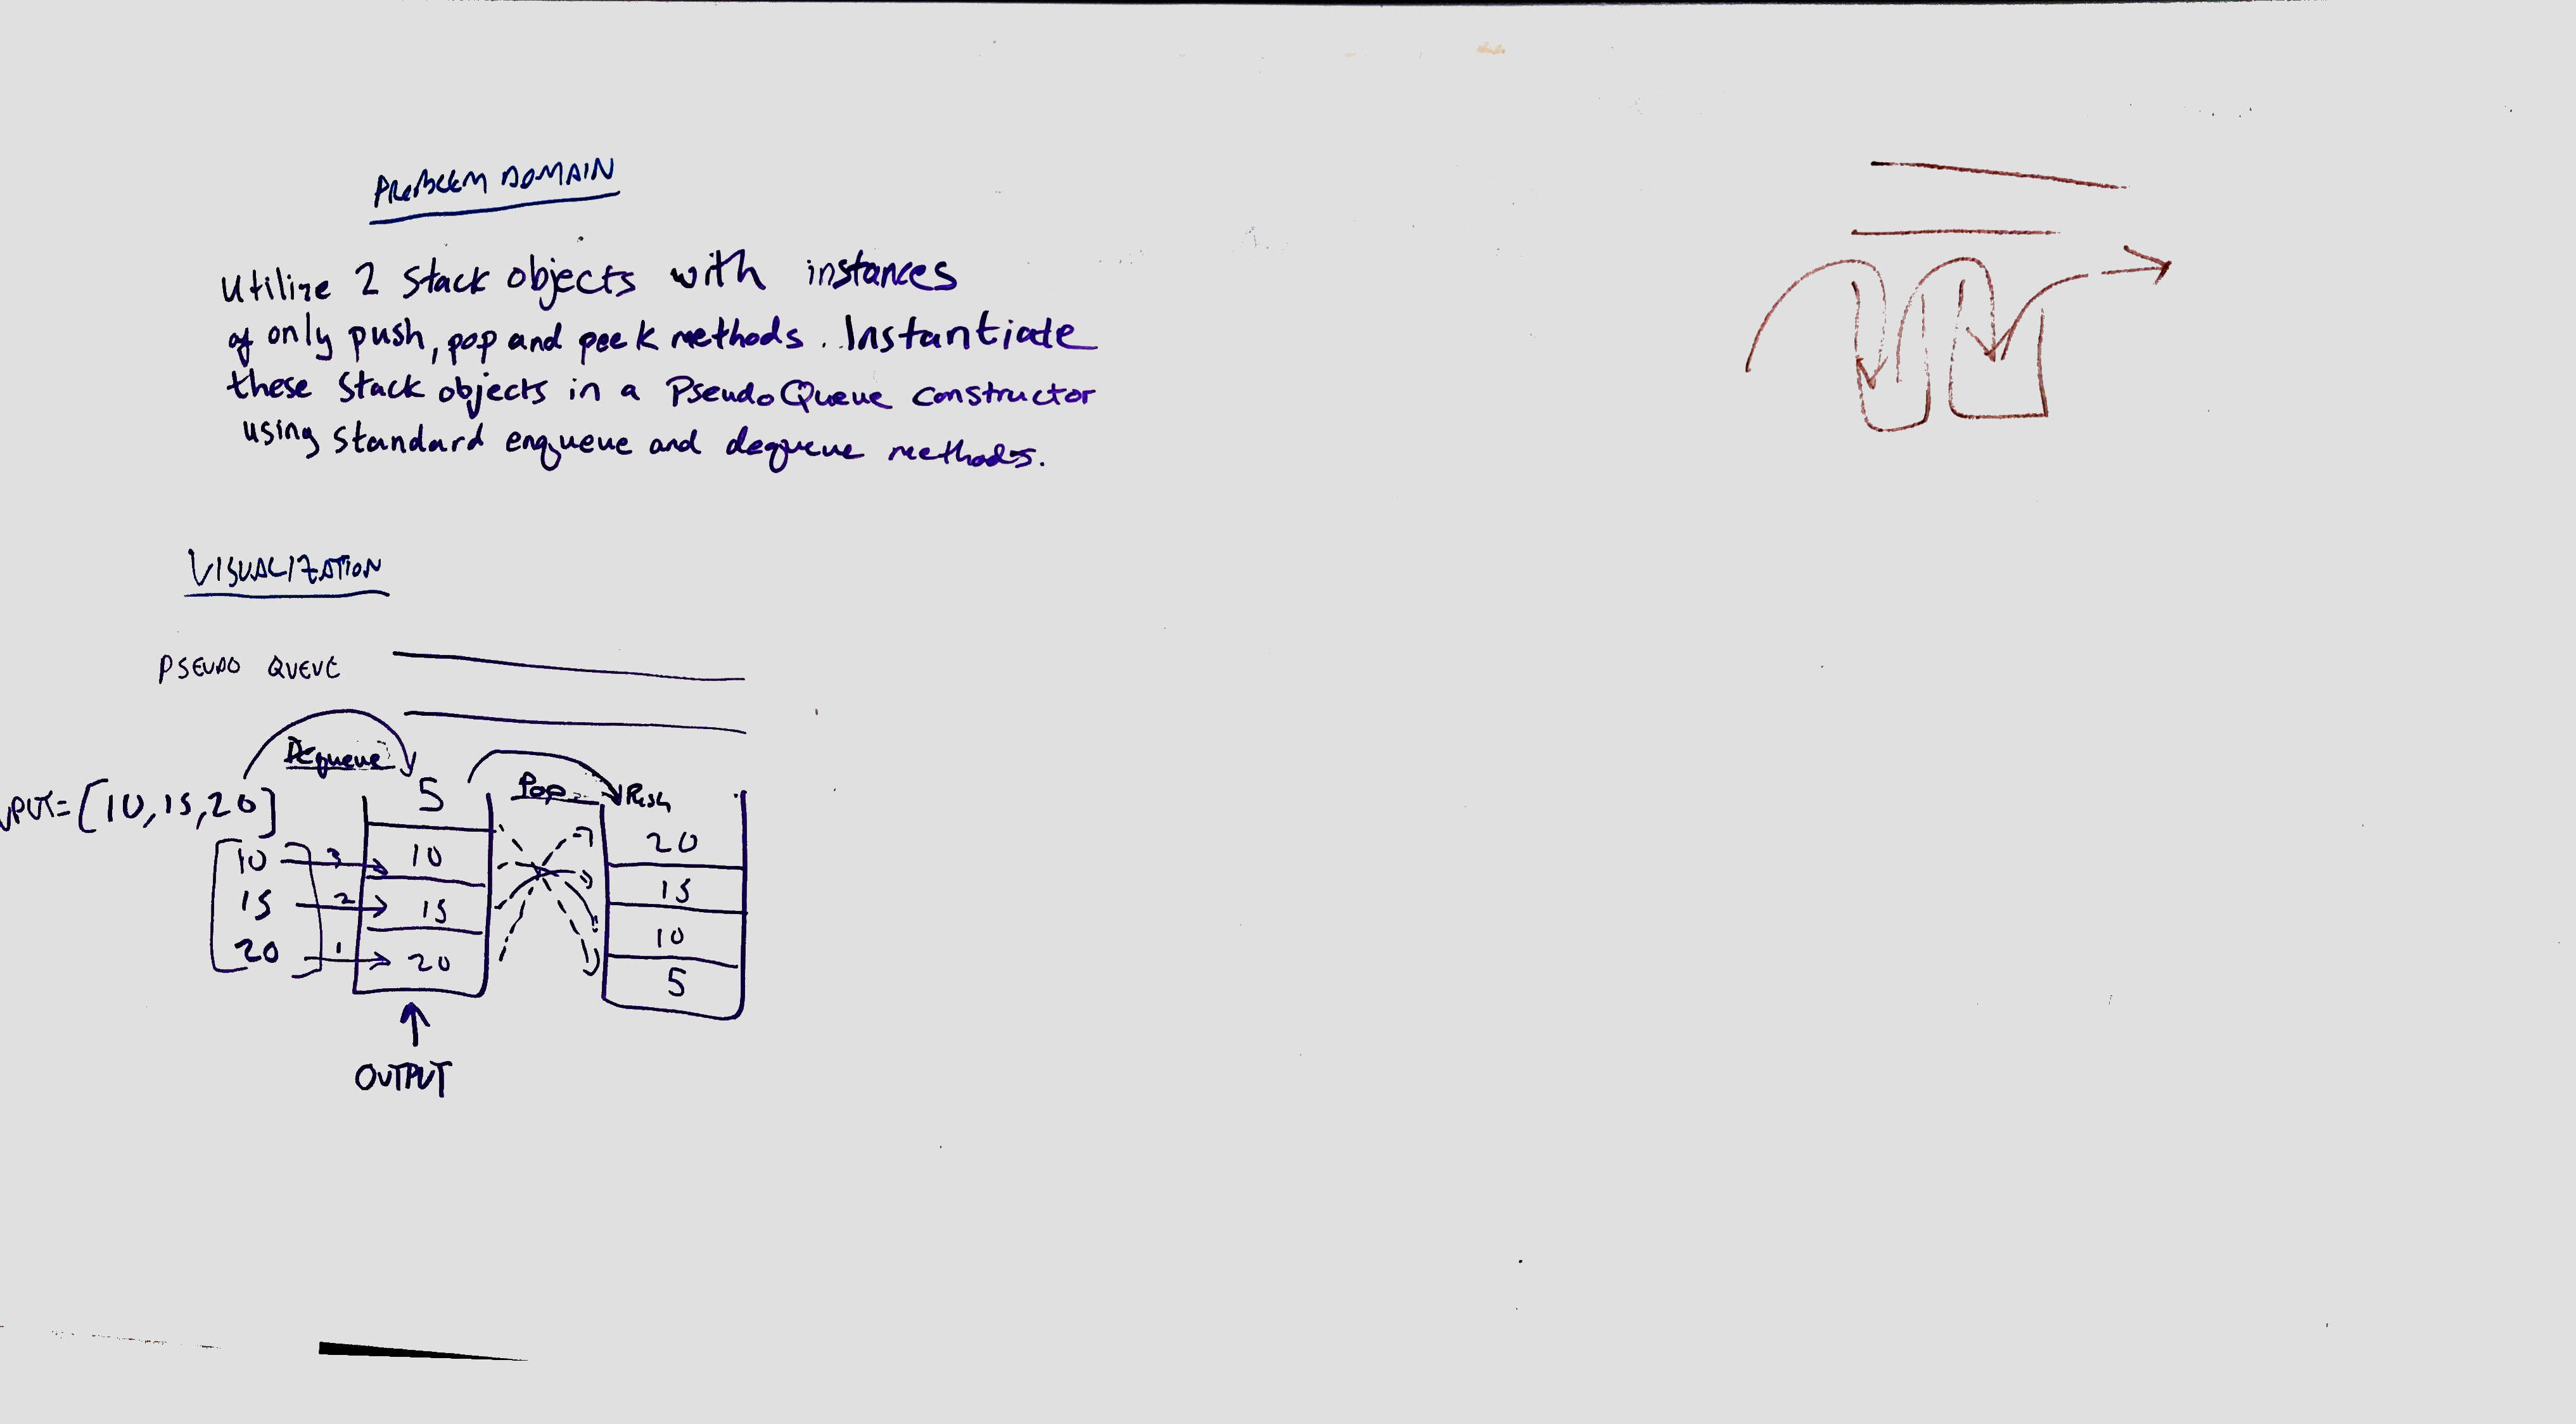 PROBLEM DOMAIN
Utilize 2 stack objects with instances
of only push, pop and peek methods. Instantiate
these stack objects in a PseudoQueue constructor
using standard enqueue and dequeue methods.
VISUALIZATION
PSEUDO QUEUE
Dequeue
Pop
Push
PUT=[10,15,20]
5
10
15
20
3
2
1
10
15
20
20
15
10
5
OUTPUT